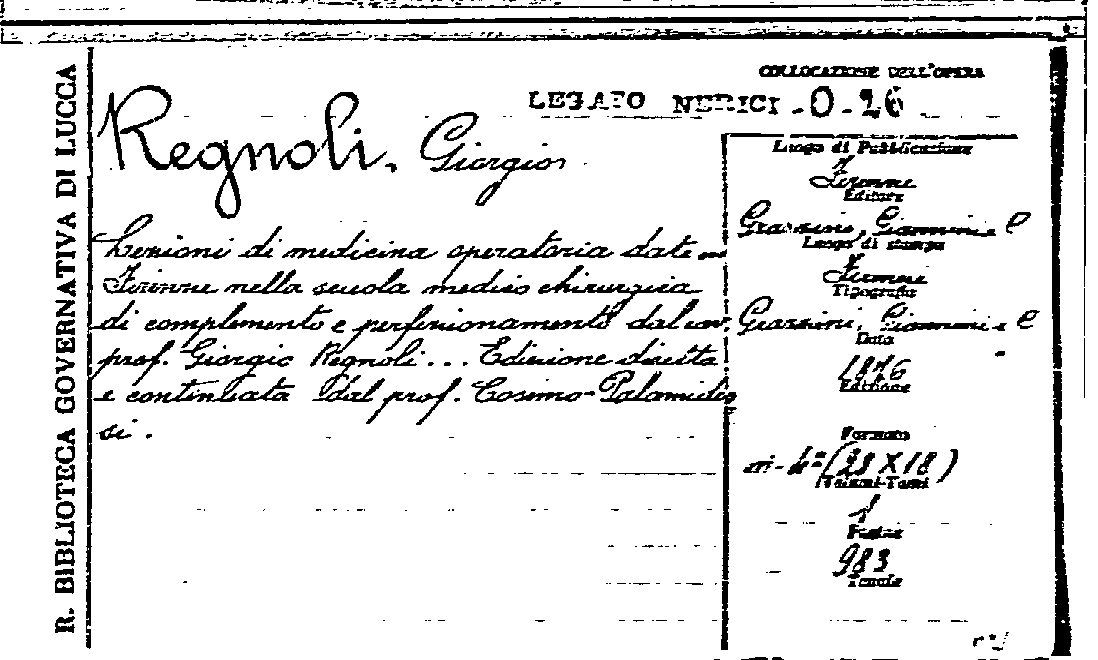 R. BIBLIOTECA GOVERNATIVA DI LUCCA
COLLOCAZIONE DELL'OPERA
LEGATO NERICI -O-26
Regnoli, Giorgio
Lezioni di medicina operatoria date in
Firenze nella scuola medico chirurgica
di complemento e perfezionamento dal cav.
prof. Giorgio Regnoli... Edizione diretta
e continuata dal prof. Cosimo Palamides-
si.
Luogo di Pubblicazione
Firenze
Editore
Grazzini, Giannini e C
Luogo di stampa
Firenze
Tipografia
Grazzini, Giannini e C
Data
1846
Edizione
Formato
in-4º (28 X 18)
Volumi-Tomi
1
Pagine
983
Tavole